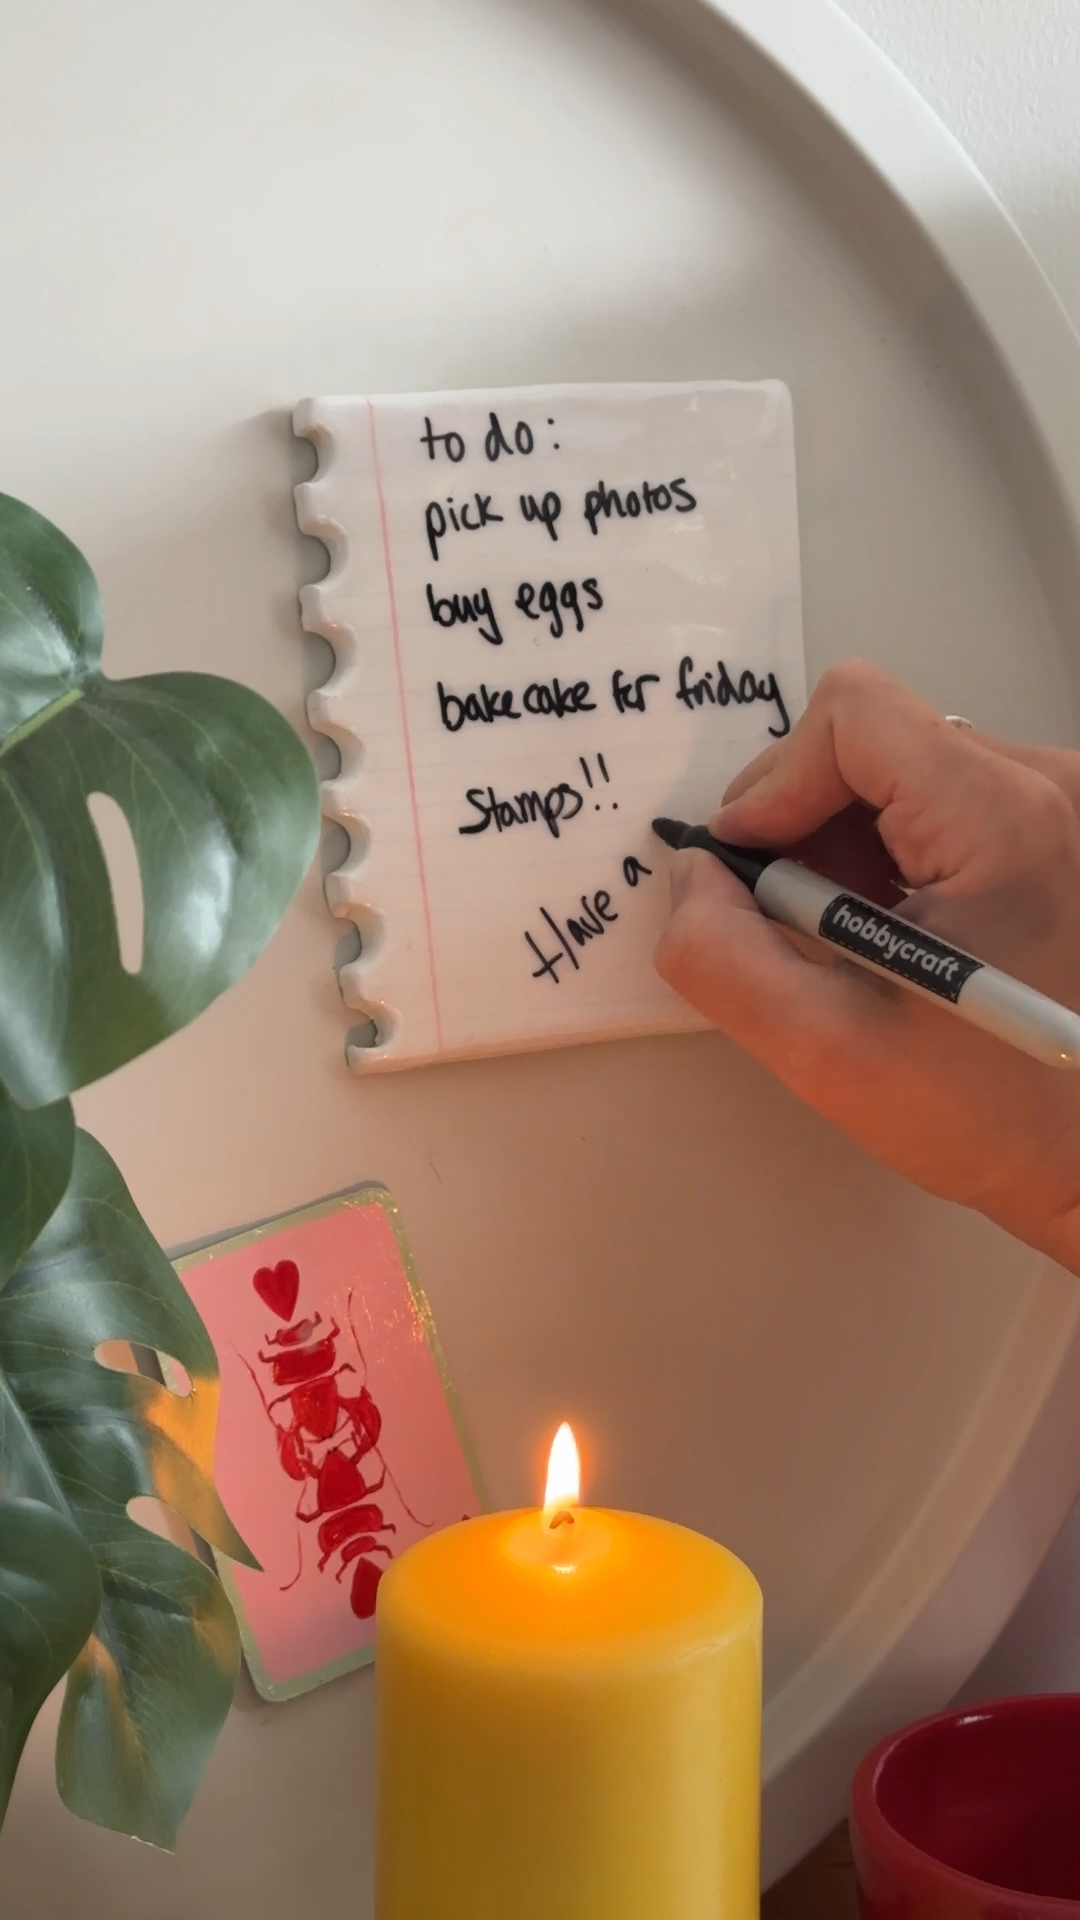 to do:
pick up photos
buy eggs
bake cake for friday
Stamps!!
Have a
hobbycraft